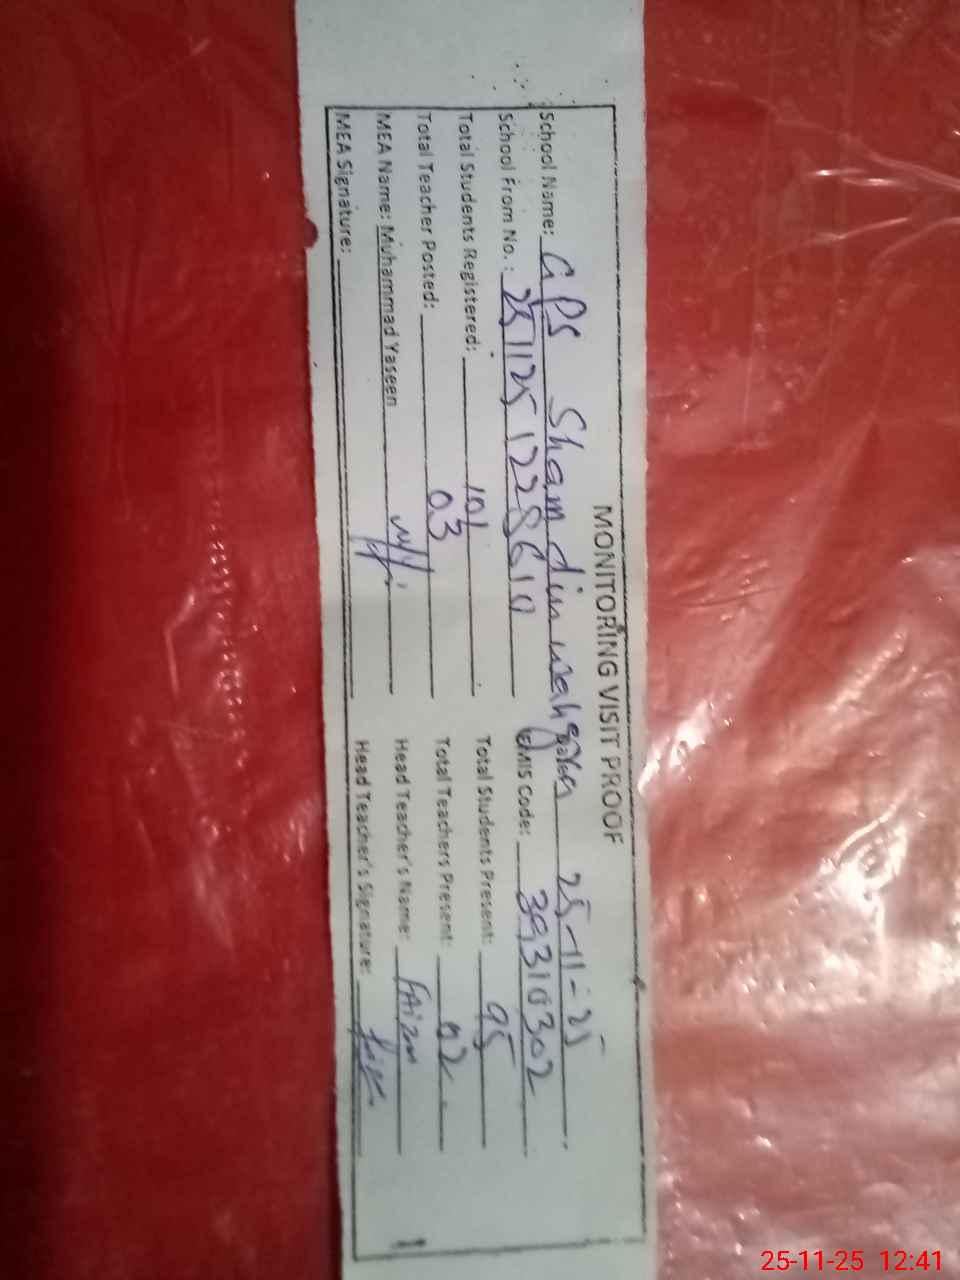 MONITORING VISIT PROOF
School Name: GPS Sham din wah 25-11-25
School From No.: 251125122 610 EMIS Code: 39310302
Total Students Registered: 101 Total Students Present: 95
Total Teacher Posted: 03 Total Teachers Present: 02
MEA Name: Muhammad Yaseen Head Teacher's Name: FAizan
MEA Signature: Head Teacher's Signature:
25-11-25 12:41